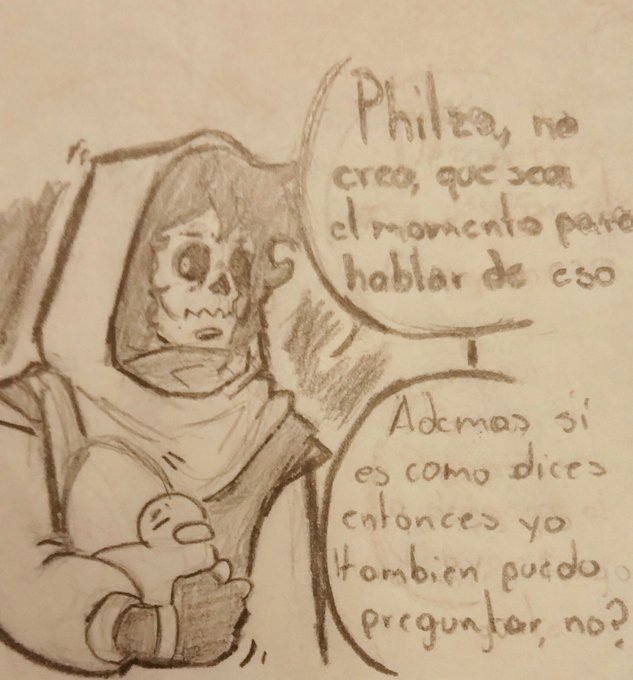 Philza, no
creo, que sea
el momento para
hablar de eso
Ademas si
es como dices
entonces yo
tambien puedo
preguntar, no?